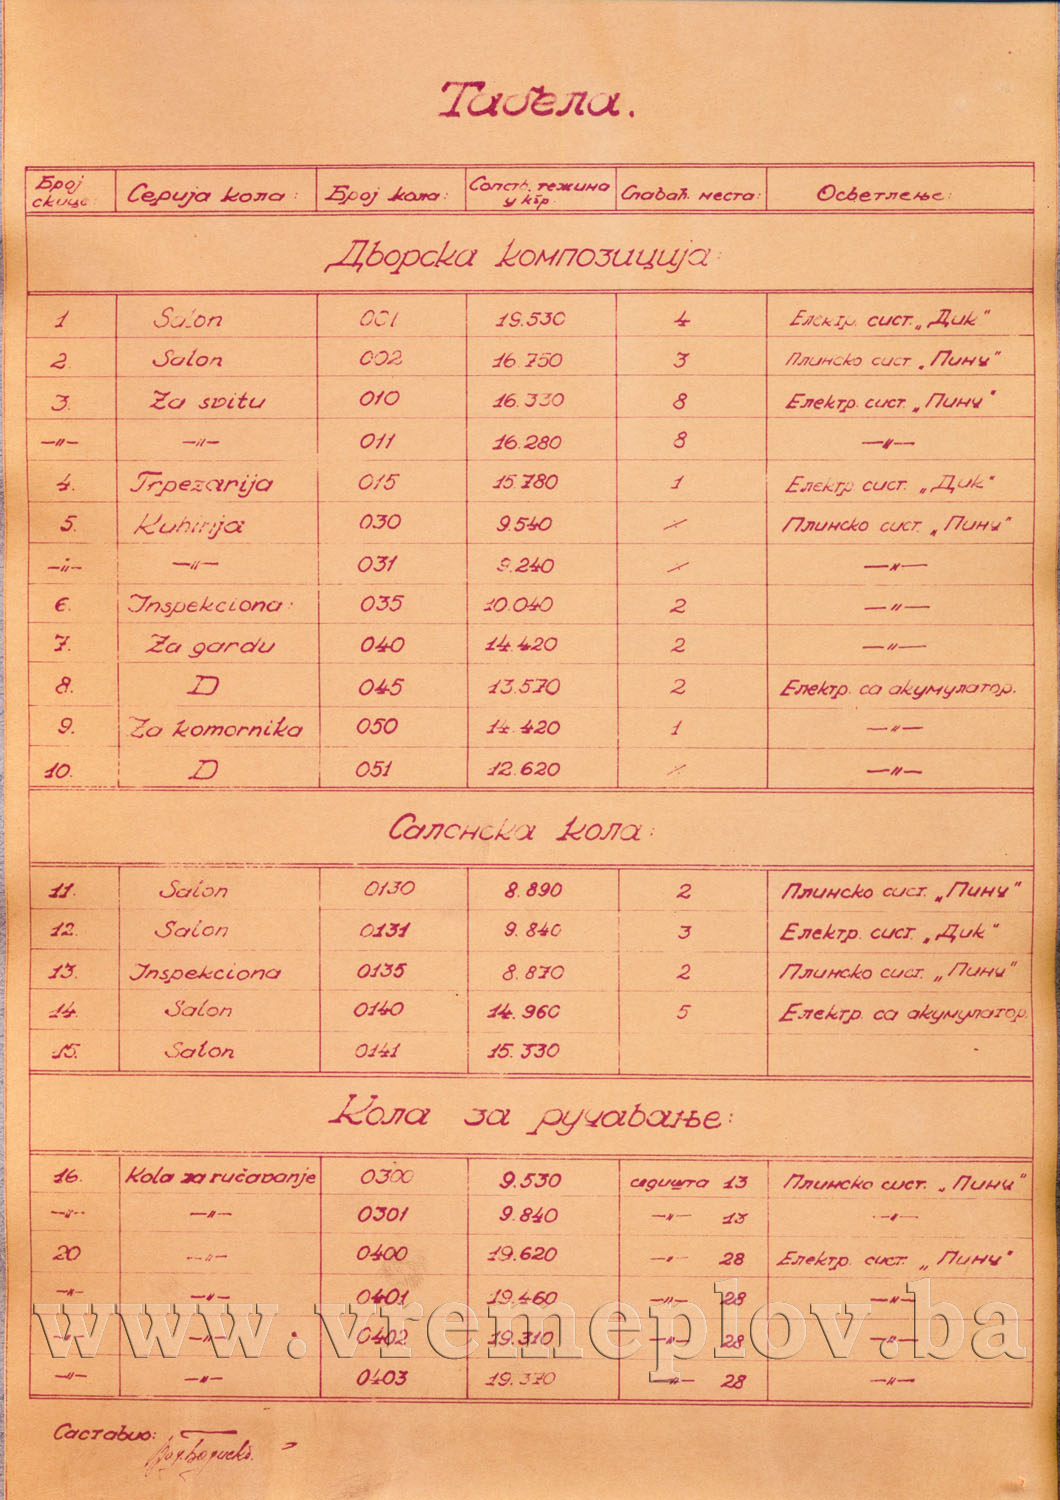 Табела.
Број скице: Серија кола: Број кола: Сопств. тежина у кгр. Спаваћ. места: Осветлење:
Дворска композиција:
1 Salon 001 19.530 4 Електр. сист. „Дик“
2. Salon 002 16.750 3 Плинско сист. „Пинч“
3. Za svitu 010 16.330 8 Електр. сист. „Пинч“
—〃— —〃— 011 16.280 8 —〃—
4. Trpezarija 015 15.780 1 Електр сист. „Дик“
5. Kuhinja 030 9.540 / Плинско сист. „Пинч“
—〃— —〃— 031 9.240 / —〃—
6. Inspekciona: 035 10.040 2 —〃—
7. Za gardu 040 14.420 2 —〃—
8. D 045 13.570 2 Електр. са акумулатор.
9. Za komornika 050 14.420 1 —〃—
10. D 051 12.620 / —〃—
Салонска кола:
11. Salon 0130 8.890 2 Плинско сист. „Пинч“
12. Salon 0131 9.840 3 Електр. сист. „Дик“
13. Inspekciona 0135 8.870 2 Плинско сист. „Пинч“
14. Salon 0140 14.960 5 Електр. са акумулатор.
15. Salon 0141 15.330
Кола за ручавање:
16. Kola za ručavanje 0300 9.530 седишта 13 Плинско сист. „Пинч“
—〃— —〃— 0301 9.840 —〃— 13 —〃—
20 —〃— 0400 19.620 —〃— 28 Електр. сист. „Пинч“
—〃— —〃— 0401 19.460 —〃— 28 —〃—
—〃— —〃— 0402 19.310 —〃— 28 —〃—
—〃— —〃— 0403 19.370 —〃— 28 —〃—
www.vremeplov.ba
Саставио: